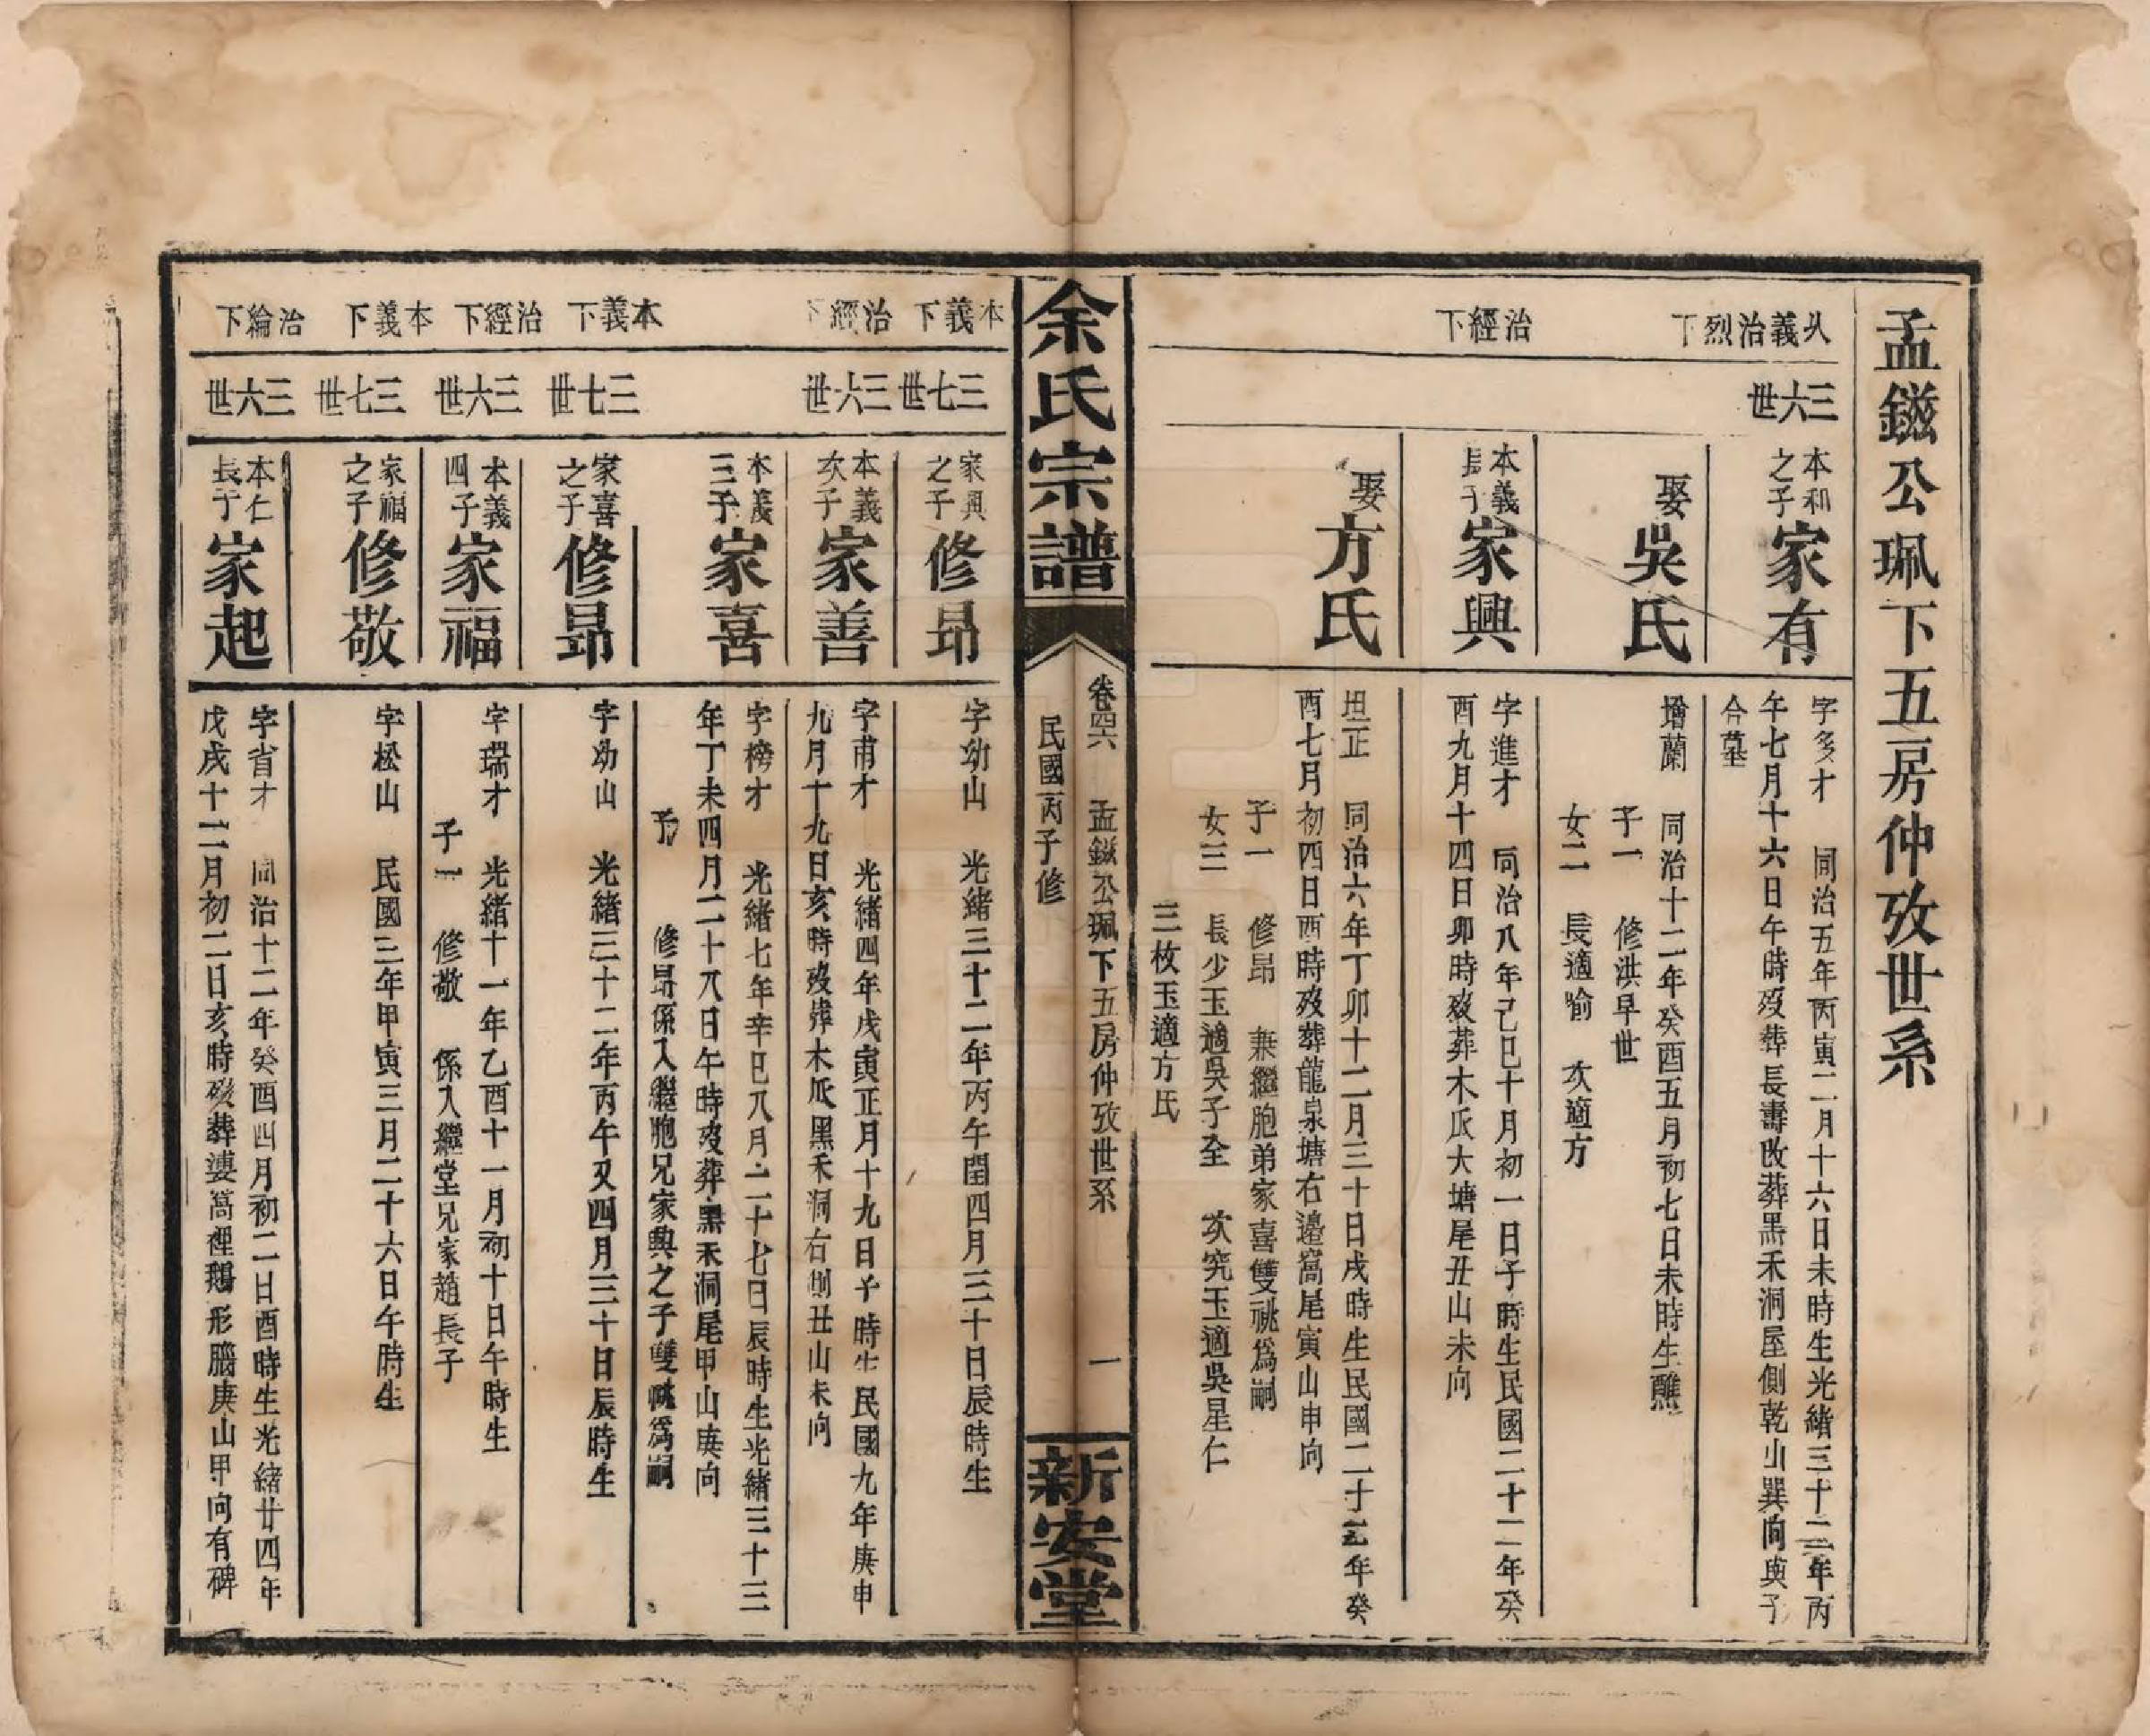 孟鎡公珮下五房仲攷世系
乆義治烈下
三六世
本和之子 家有
字多才 同治五年丙寅二月十六日未時生光緒三十二年丙
午七月十六日午時歿葬長壽改葬黑禾洞屋側乾山巽向與子
合墓
娶 吳氏
增蘭 同治十二年癸酉五月初七日未時生醮
子一 修洪早世
女二 長適喻 次適方
治經下
本義長子 家興
字進才 同治八年己巳十月初一日子時生民國二十二年癸
酉九月十四日卯時歿葬木瓜大塘尾丑山未向
娶 方氏
坦正 同治六年丁卯十二月三十日戌時生民國二十年癸
酉七月初四日酉時歿葬龍泉塘右邊窩尾寅山申向
子一 修昻 兼繼胞弟家喜雙祧爲嗣
女三 長少玉適吳子全 次究玉適吳星仁
三枚玉適方氏
余氏宗譜
卷四六 孟鎡公珮下五房仲攷世系 一
民國丙子修
新安堂
本義下
三七世
家興之子 修昻
字幼山 光緒三十二年丙午閏四月三十日辰時生
治經下
三六世
本義次子 家善
字甫才 光緒四年戊寅正月十九日子時生民國九年庚申
九月十九日亥時歿葬木瓜黑禾洞右側丑山未向
本義三子 家喜
字榜才 光緒七年辛巳八月二十七日辰時生光緒三十三
年丁未四月二十八日午時歿葬黑禾洞尾甲山庚向
子 修昻係入繼胞兄家興之子雙祧爲嗣
本義下
三七世
家喜之子 修昻
字幼山 光緒三十二年丙午又四月三十日辰時生
治經下
三六世
本義四子 家福
字瑞才 光緒十一年乙酉十一月初十日午時生
子一 修敬 係入繼堂兄家趙長子
本義下
三七世
家福之子 修敬
字松山 民國三年甲寅三月二十六日午時生
治綸下
三六世
本仁長子 家起
字省才 同治十二年癸酉四月初二日酉時生光緒廿四年
戊戌十二月初二日亥時歿葬婆窩裡鵝形腦庚山甲向有碑